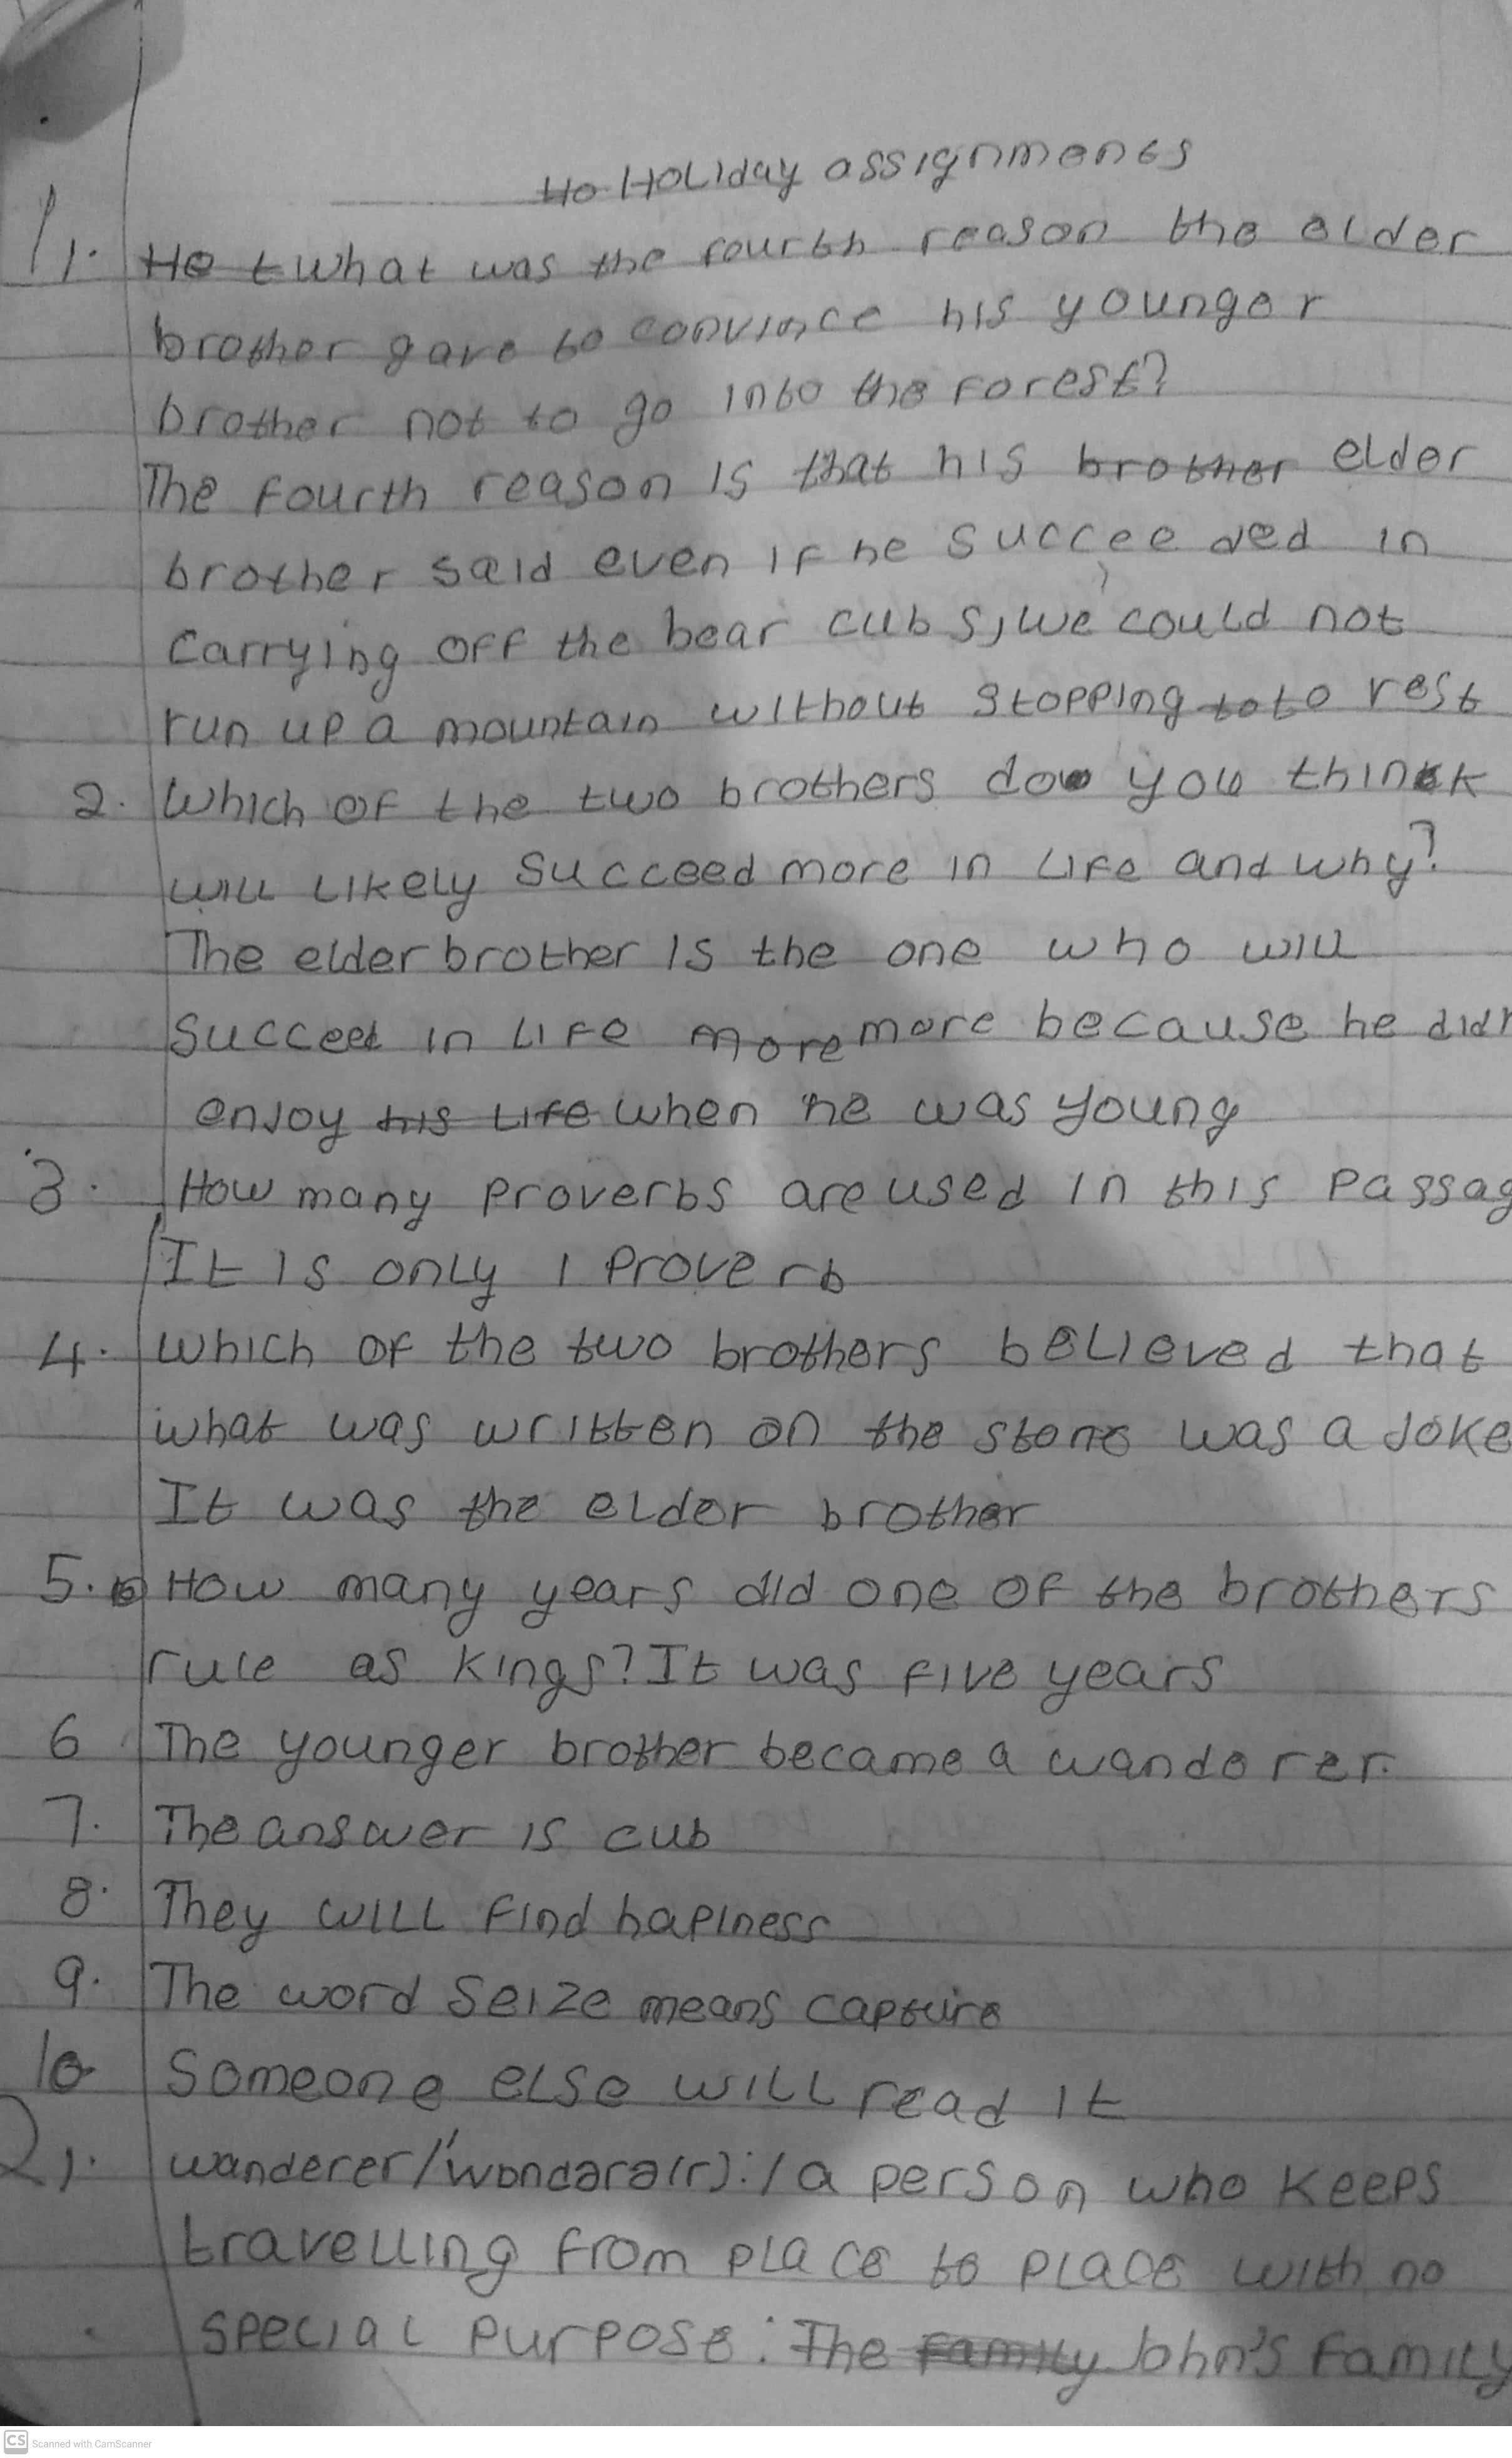 Ho Holiday assignments
1 1. He t what was the fourth reason the elder
brother gave to convince his younger
brother not to go into the forest?
The fourth reason is that his brother elder
brother said even if he succeeded in
carrying off the bear cubs, we could not
run up a mountain without stopping to to rest
2. Which of the two brothers do you think
will likely succeed more in life and why?
The elder brother is the one who will
succeed in life more more because he didn
enjoy his life when he was young
3. How many proverbs are used in this passag
It is only 1 proverb
4. Which of the two brothers believed that
what was written on the stone was a joke
It was the elder brother
5. How many years did one of the brothers
rule as kings? It was five years
6 The younger brother became a wanderer.
7. The answer is cub
8. They will find hapiness
9. The word seize means capture
10 Someone else will read it
2 1. wanderer/'wondara(r):/ a person who keeps
travelling from place to place with no
special purpose: The family John's family
CS Scanned with CamScanner